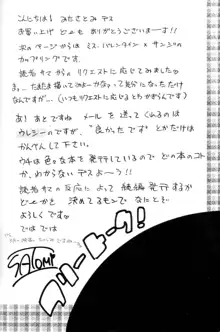 こんにちは! みたさとみ デス
お買い上げ どーも ありがとうございまーす!!
次のページからは ミス.バレンタイン × サンジの
カップリングです。
読者サマから リクエストに応じてみましたな
たまたま描いてみたかな～って気分に なっただけ
なんですが… (いつもリクエストに応じるとかぎらんです)
あ! あと ですね メール を 送って くれるのは
ウレシーのですが、 "良かったです" とかだけは
かんべん して下さい。
ウチは 色々な本を 発行しているので どの本のこと
か、わからないデスよ――う!!
読者サマの 反応に よって 続編 発行するか
どーかさ 決めてるモンで なにとぞ
よろしくです。
では では
SATOMi
フリートーク!